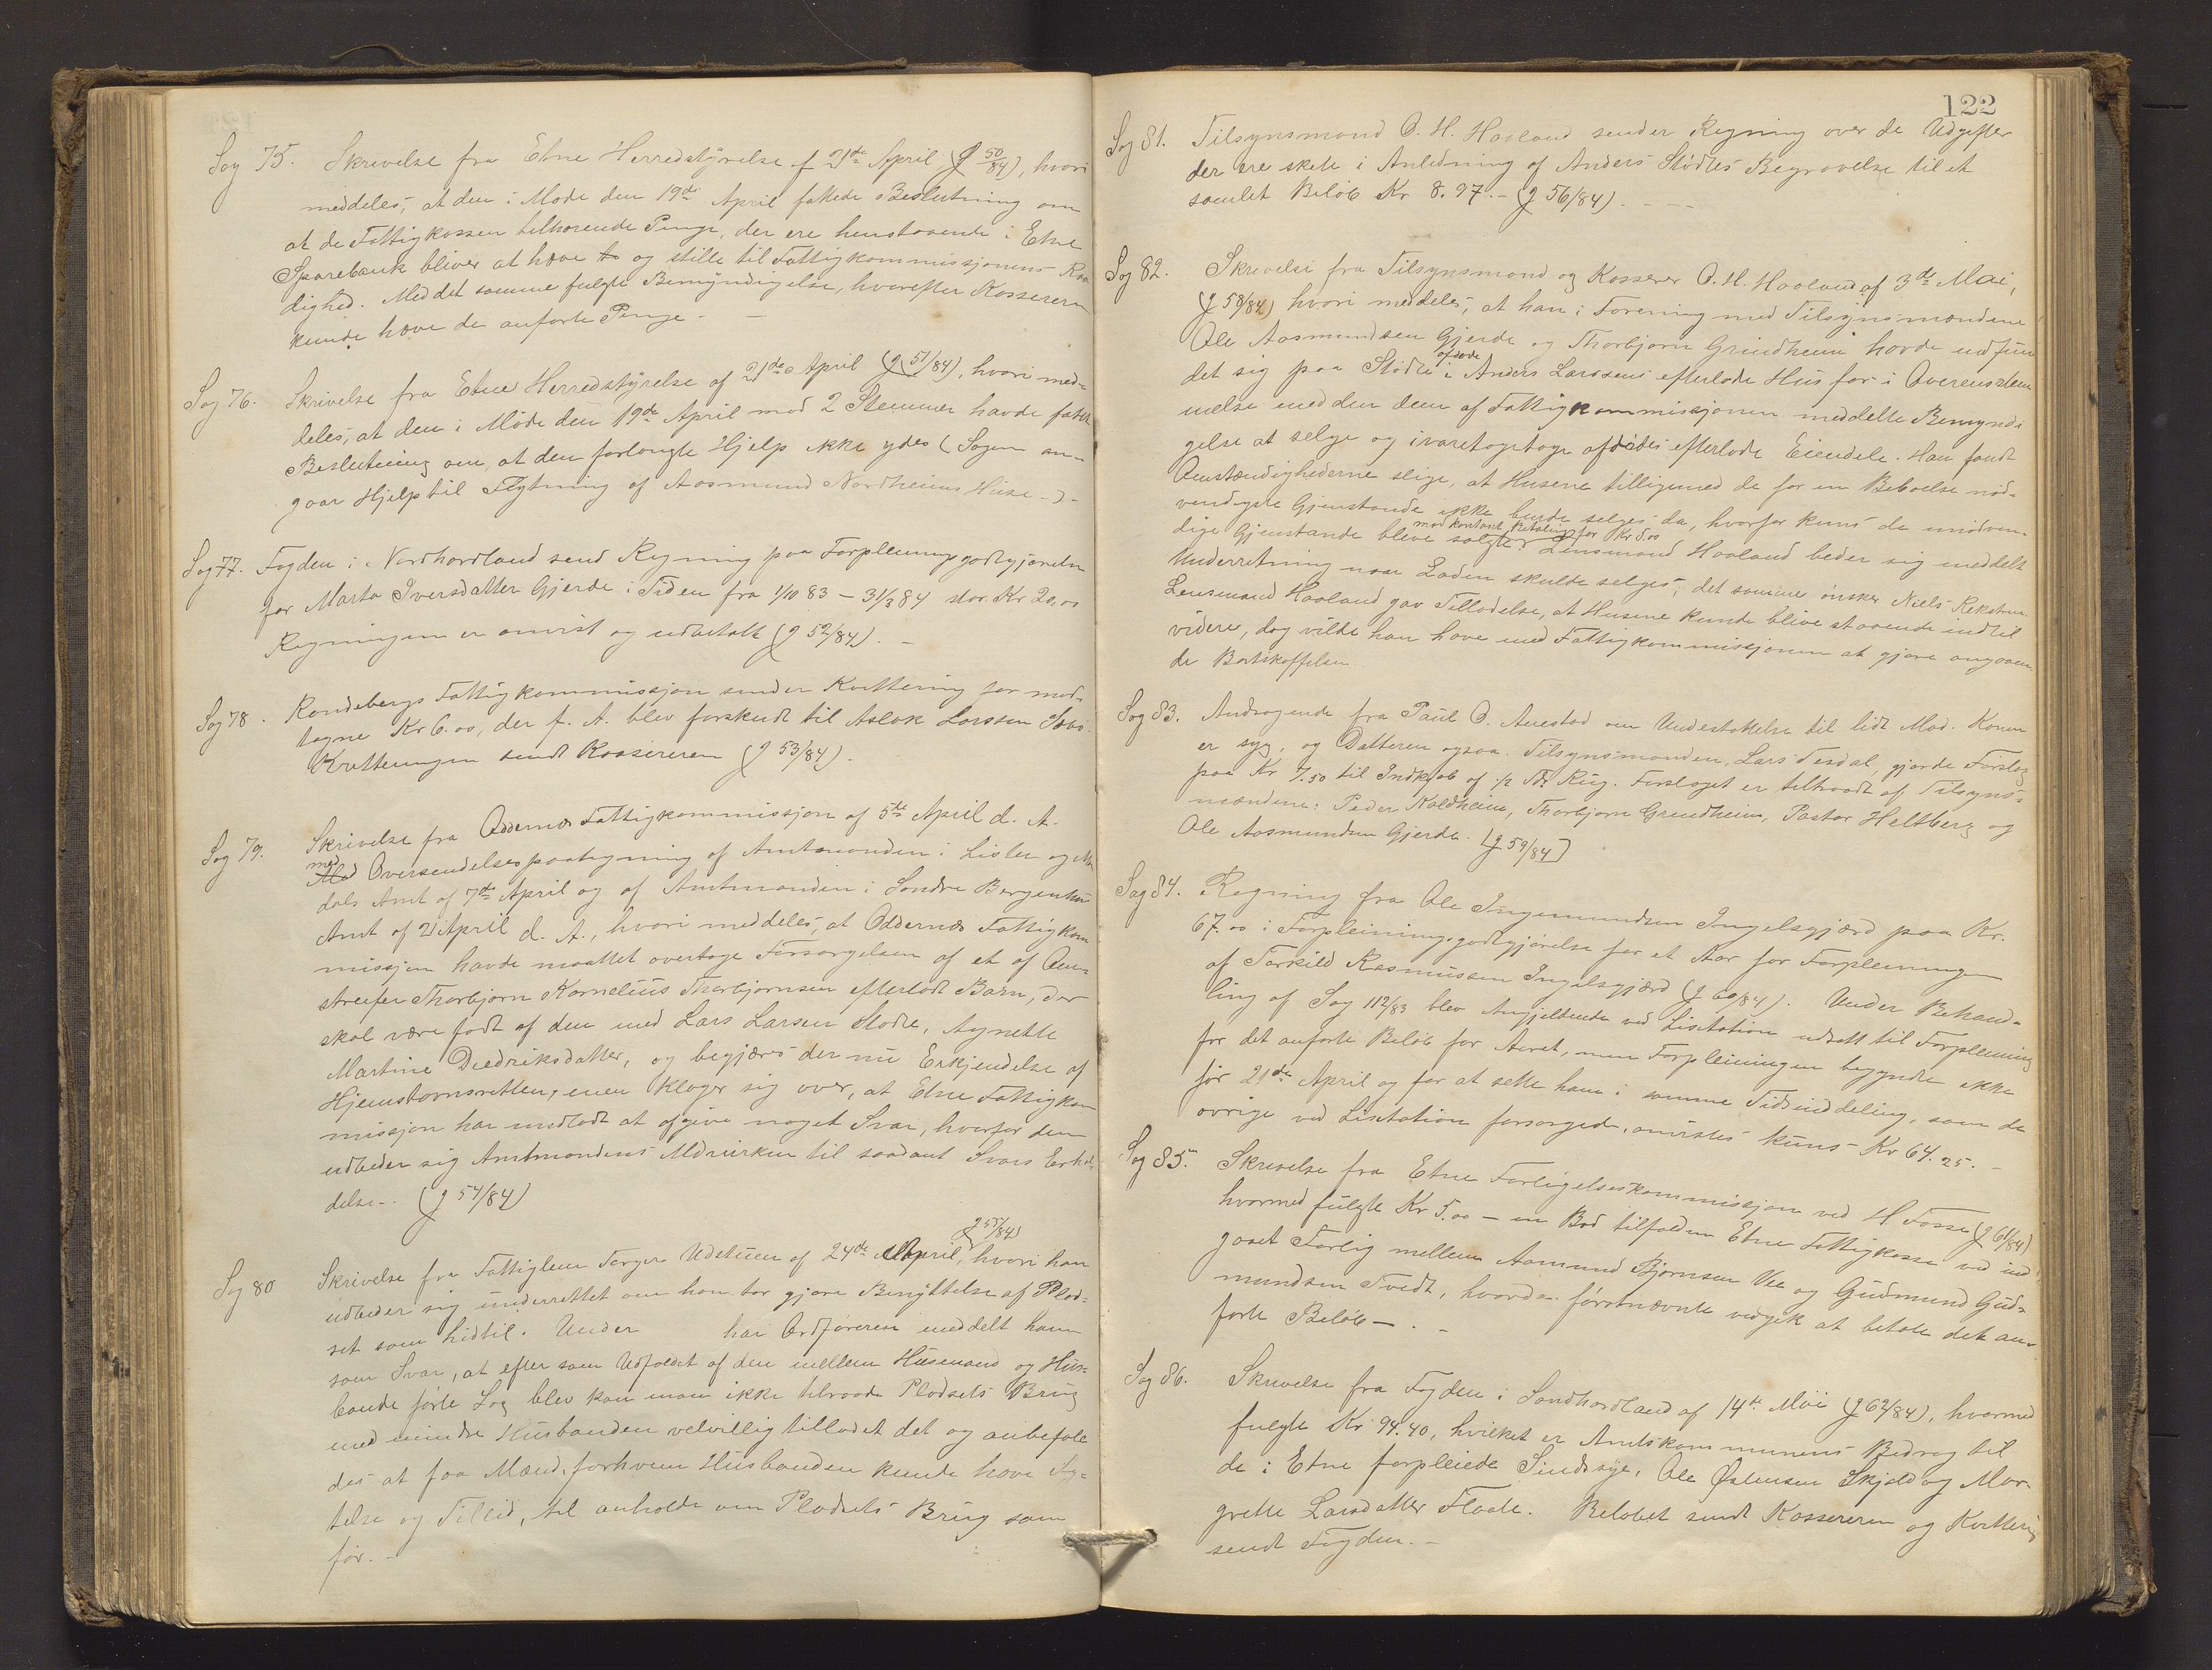 Sag 75. Skrivelse fra Etne Herredstyrelse af 21de April (J 50/84), hvori
meddeles, at den i Møde den 19de April fattede Beslutning om
at de Fattigkassen tilhørende Penge, der ere henstaaende i Etne
Sparebank bliver at hæve to og stille til Fattigkommissjonens Raa
dighed. Med det samme fulgte Bemyndigelse, hvorefter Kassereren
kunde hæve de anførte Penge. -
Sag 76. Skrivelse fra Etne Herredstyrelse af 21de April (J 51/84), hvori med-
deles, at den i Møde den 19de April mod 2 Stemmer havde fattet
Beslutning om, at den forlangte Hjelp ikke ydes (Sagen an-
gaar Hjelp til Flytning af Aasmund Nordheims Huse -) -
Sag 77. Fogden i Nordhordland send Regning paa Forpleiningsgodtgjørelse
for Marta Iversdatter Gjerde i Tiden fra 1/10 83 - 31/3 84 stor Kr 20,00
Regningen er anvist og udbetalt (J 52/84). -
Sag 78. Randebergs Fattigkommissjon sender Kvittering for mod-
tagne Kr 6.00, der f. A. blev forskudt til Aslak Larssen
Kvitteringen sendt Kassereren (J 53/84).
Sag 79. Skrivelse fra Oddernæs Fattigkommissjon af 5te April d. A.
med
Med Oversendelsespaategning af Amtmanden i Lister og Ma
dals Amt af 7de April og af Amtmanden i Søndre Bergenhus
Amt af 21 April d. A., hvori meddeles, at Oddernæs Fattigkom
missjon havde maattet overtage Forsørgelsen af et af Om-
streifer Thorbjørn Kornelius Thorbjørnsen efterladt Barn, der
skal være født af den med Lars Larsen Stødle, Agnette
Martine Diedriksdatter, og begjæres der nu Erkjendelse af
Hjemstavnsretten, men klager sig over, at Etne Fattigkom
missjon har undladt at afgive noget Svar, hvorfor den
udbeder sig Amtmandens Medvirken til saadant Svars Erhol
delse.. (J 54/84)
Sag 80 Skrivelse fra Fattiglem Torger Udstuen af 24de April, (J 55/84) hvori han
udbeder sig underrettet om han tør gjøre Benyttelse af Plad-
set som hidtil. Under har Ordføreren meddelt ham
som Svar, at efter som Udfaldet af den mellem Husmand og Hus-
bande førte Sag blev kan man ikke tilraade Pladsets Brug
med mindre Husbonden velvillig tillodet det og anbefale
des at faa Mænd, forhvem Husbonden kunde have Ag-
telse og Tillid, til anholde om Pladsets Brug som
før. -
122
Sag 81. Tilsynsmand O. H. Haaland sender Regning over de Udgifter
der ere skete i Anledning af Anders Stødles Begravelse til et
samlet Beløb Kr 8.97. - (J 56/84). - - -
Sag 82. Skrivelse fra Tilsynsmand og Kasserer O. H. Haaland af 3de Mai,
(J 58/84) hvori meddeles, at han i Forening med Tilsynsmændene
Ole Aasmundsen Gjerde og Thorbjørn Grindheim havde indfun
afdøde
det sig paa Stødle i Anders Larssens efterladte Hus for i Overensstem
melse med den dem af Fattigkommissjonen meddelte Bemyndi
gelse at selge og ivaretagetage afdødes efterladte Eiendele. Han fandt
Omstændighederne slige, at Husene tilligemed de for en Beboelse nød-
vendigste Gjenstande ikke burde selges da, hvorfor kuns de unødven-
mod kontant Betaling for Kr 5.00
dige Gjenstande bleve solgte. Lensmand Haaland beder sig meddelt
Underretning naar Laden skulde selges, det samme ønsker Niels
Lensmand Haaland gav Tilladelse, at Husene kunde blive staaende indtil
videre, dog vilde han have med Fattigkommissjonen at gjøre angaaen
de Bortskaffelsen.
Sag 83. Andragende fra Paul O. Auestad om Understøttelse til lidt Mad. Konen
er syg, og Datteren ogsaa. Tilsynsmanden, Lars Tesdal, gjorde Forslag
paa Kr 7.50 til Indkjøb af 1/2 Td Rug. Forslaget er tiltraadt af Tilsyns-
mændene: Peder Naldheim, Thorbjørn Grindheim, Pastor Heltberg og
Ole Aasmundsen Gjerde. [J 59/84]
Sag 84. Regning fra Ole Ingemundsen Ingelsgjærd paa Kr.
67.00 i Forpleiningsgodtgjørelse for et Aar for Forpleiningen
af Torkild Rasmussen Ingelsgjærd (J 60/84). Under Behand-
ling af Sag 112/83 blev Angjeldende ved Lisitation udsatt til Forpleining
for det anførte Beløb for Aaret, men Forpleiningen begyndte ikke
før 21de April og for at sette ham i samme Tidsinddeling, som de
øvrige ved Lisitation forsørgede, anvistes kuns Kr 64.25. -
Sag 85. Skrivelse fra Etne Forligelseskommissjon ved H Fosse (J 61/84)
hvormed fulgte Kr 5.00 - en Bod tilfalden Etne Fattigkasse ved ind
gaaet Forlig mellem Aamund Bjørnsen Vee og Gudmund Gud-
mundsen Tvedt, hvorda førstnævnte vedgik at betale det an-
førte Beløb - . -
Sag 86. Skrivelse fra Fogden i Søndhordland af 14de Mai (J 62/84), hvormed
fulgte Kr 94.40, hvilket er Amtskommunens Bidrag til
de i Etne forpleiede Sindssyge, Ole Østensen Skjold og Mar-
grette Larsdatter Flaate. Beløbet sendt Kassereren og Kvittering
sendt Fogden. -